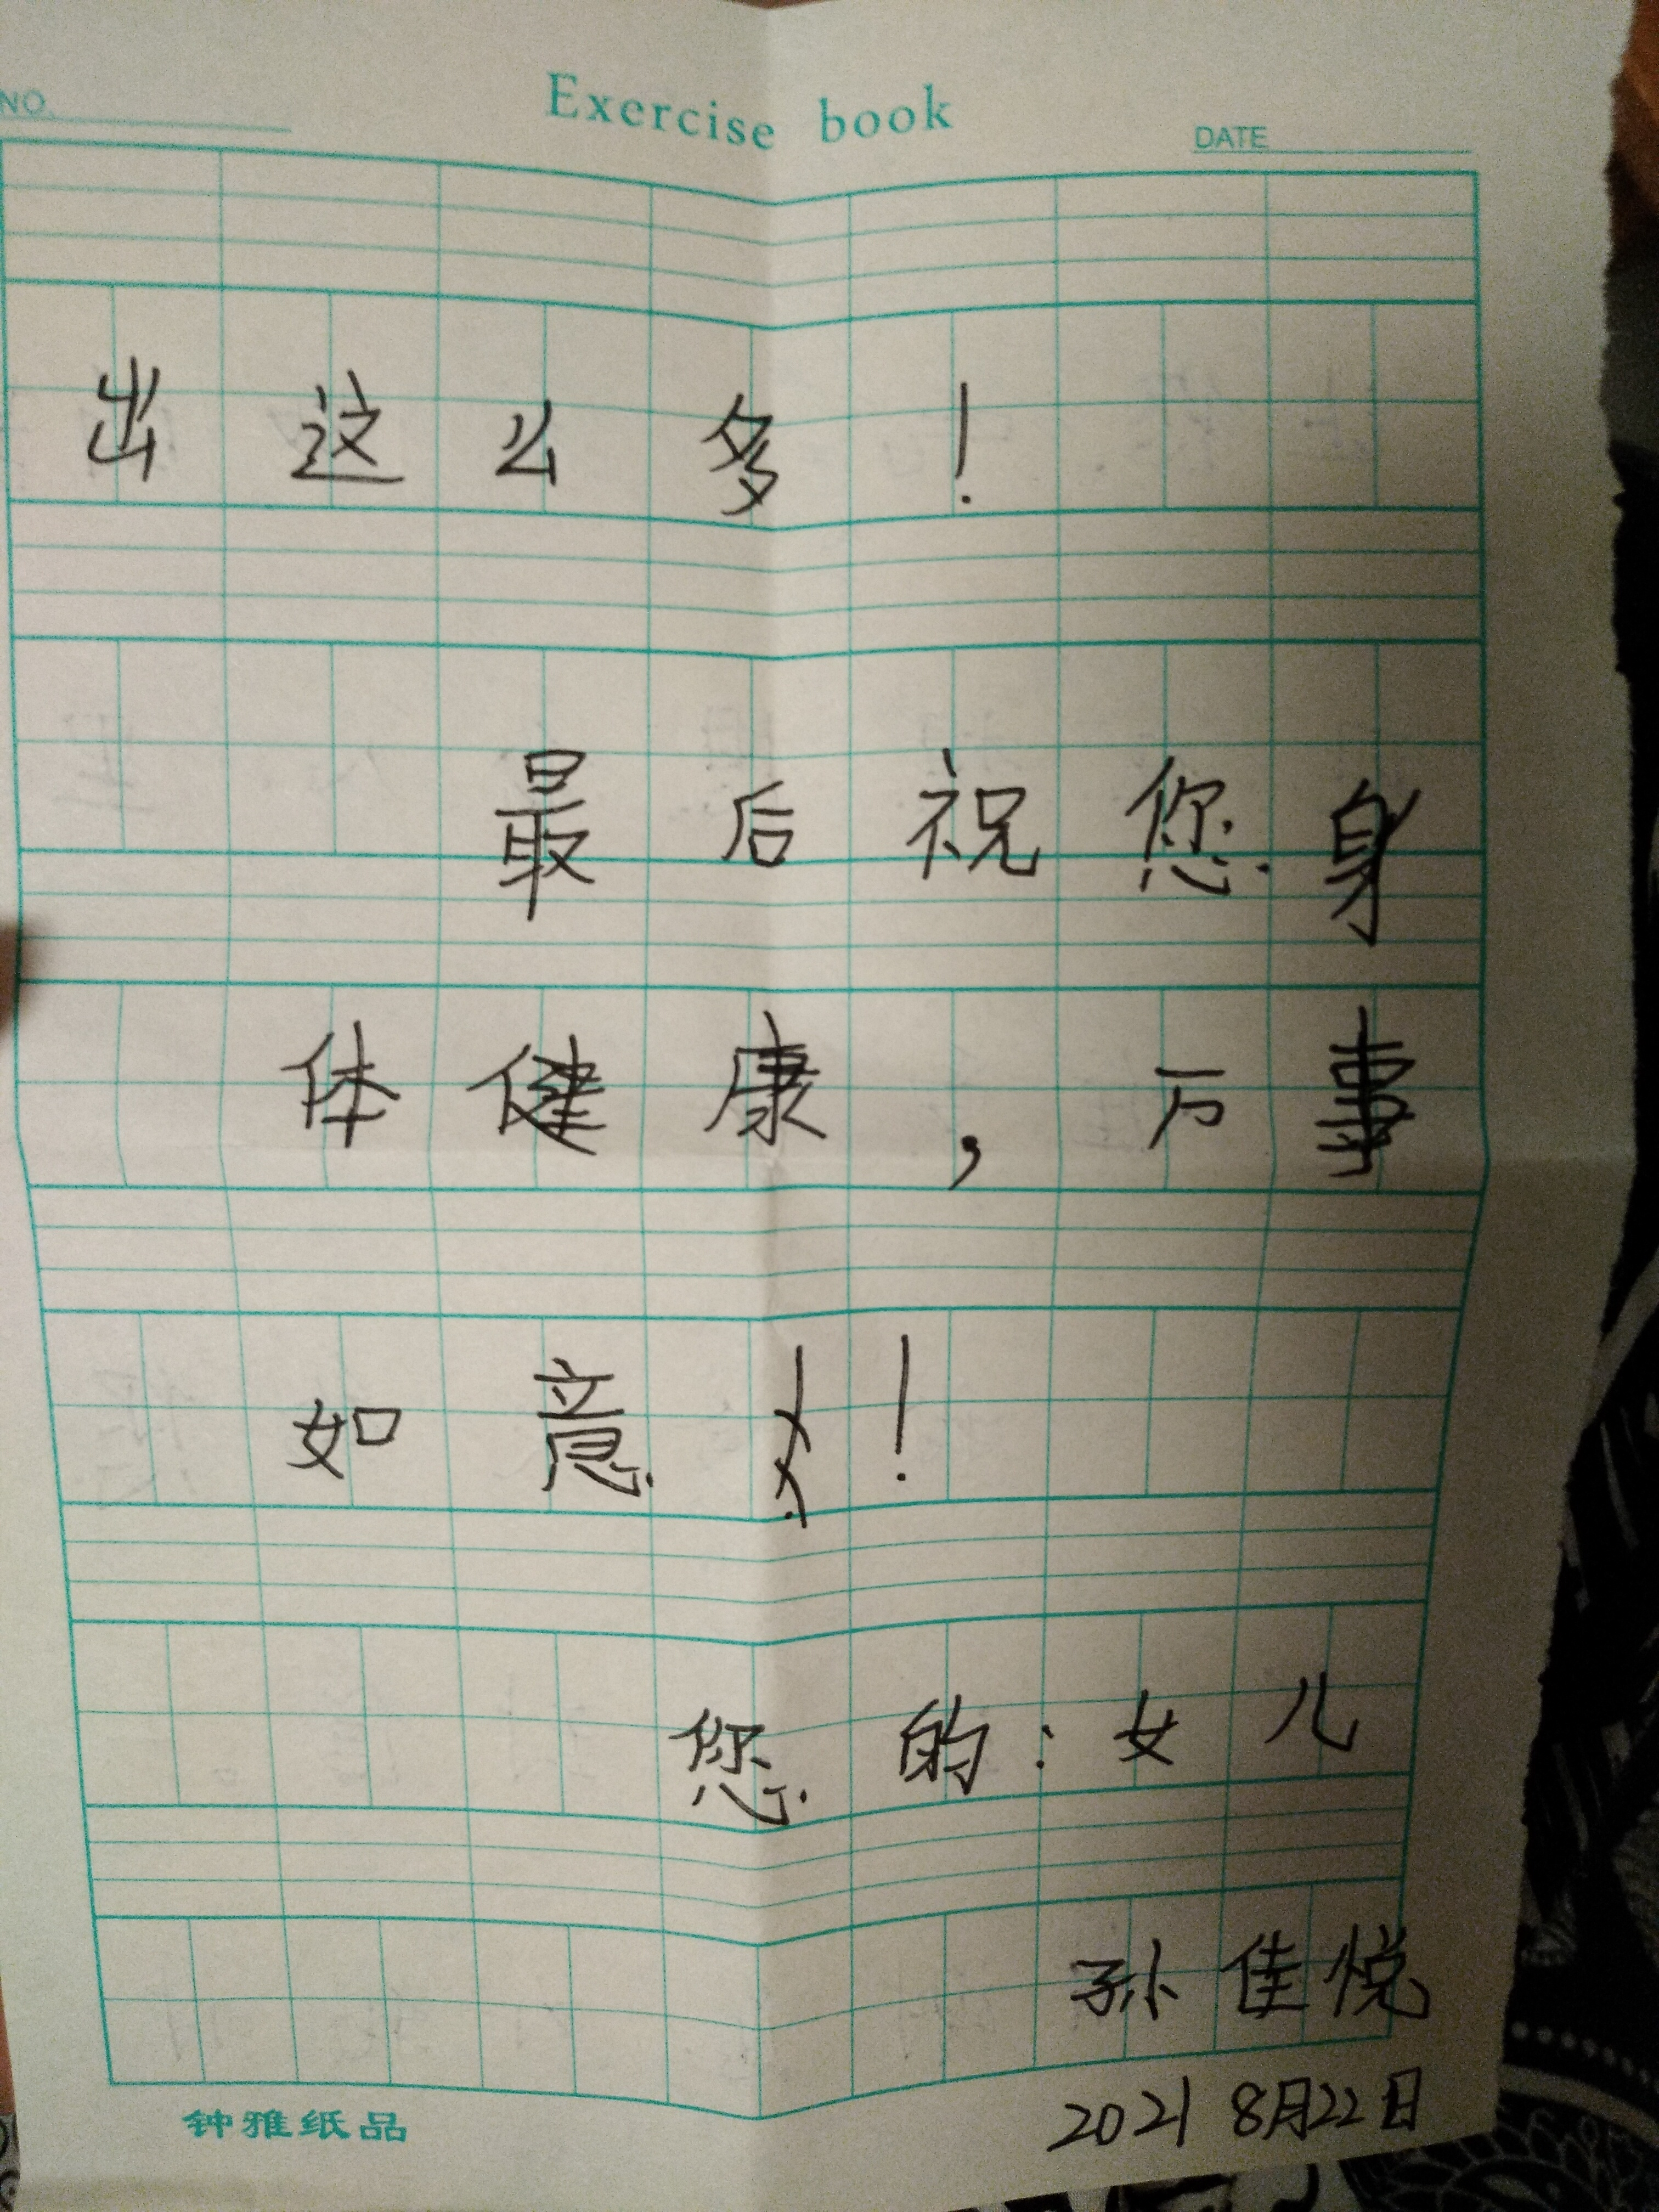 NO.
Exercise book
DATE
出这么多!
最后祝您身
体健康,万事
如意!
您的:女儿
孙佳悦
2021 8月22日
钟雅纸品